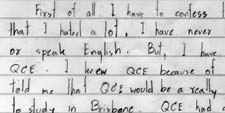 First of all. I have to confess
that I hated a lot, I have never
or speak English. But, I have
QCE. I knew QCE because of
told me that QCE would be a really
to study in Brisbane. QCE had a